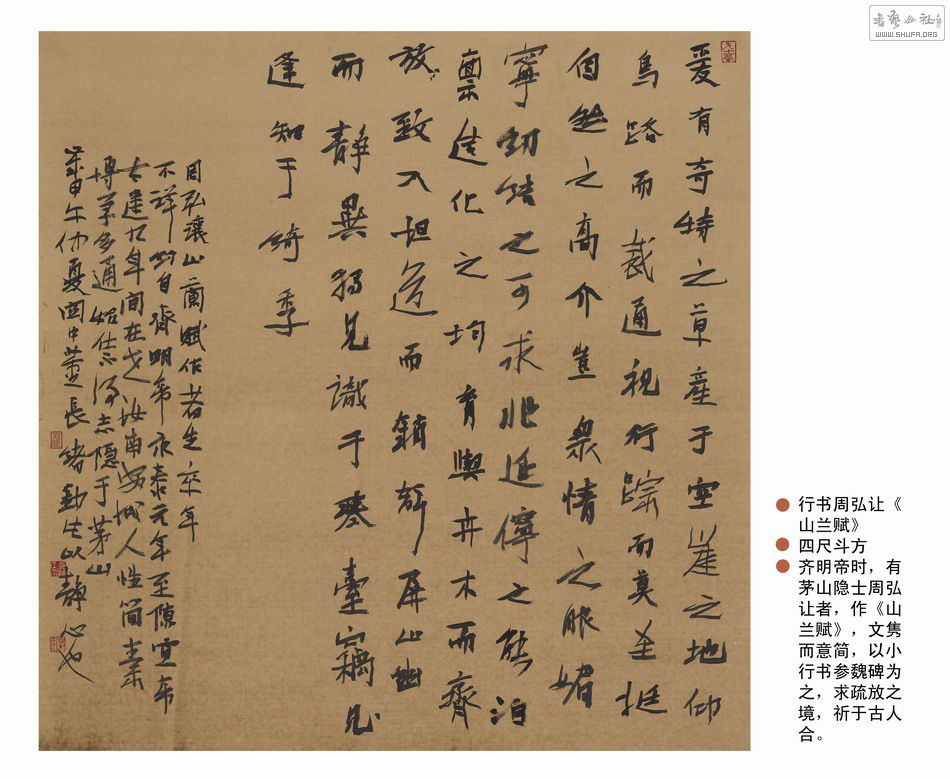 書藝公社
WWW.SHUFA.ORG
爰有奇特之草產于空崖之地仰
鳥路而裁通視行蹤而莫至挺
自然之高介豈衆情之服媚
寧紉結之可求兆延儜之能泊
禀造化之均育與卉木而齊
放致入坦道而銷聲屏山幽
而靜異獨見識于琴臺竊見
逢知于綺季
周弘讓山蘭賦作者生卒年
不詳約自齊明帝永泰元年至陳宣帝
太建九年間在世汝南安城人性簡素
博學多通始仕不得志隱于茅山
甲午仲夏 董長緒 以靜心也
行书周弘让《
山兰赋》
四尺斗方
齐明帝时，有
茅山隐士周弘
让者，作《山
兰赋》，文隽
而意简，以小
行书参魏碑为
之，求疏放之
境，祈于古人
合。